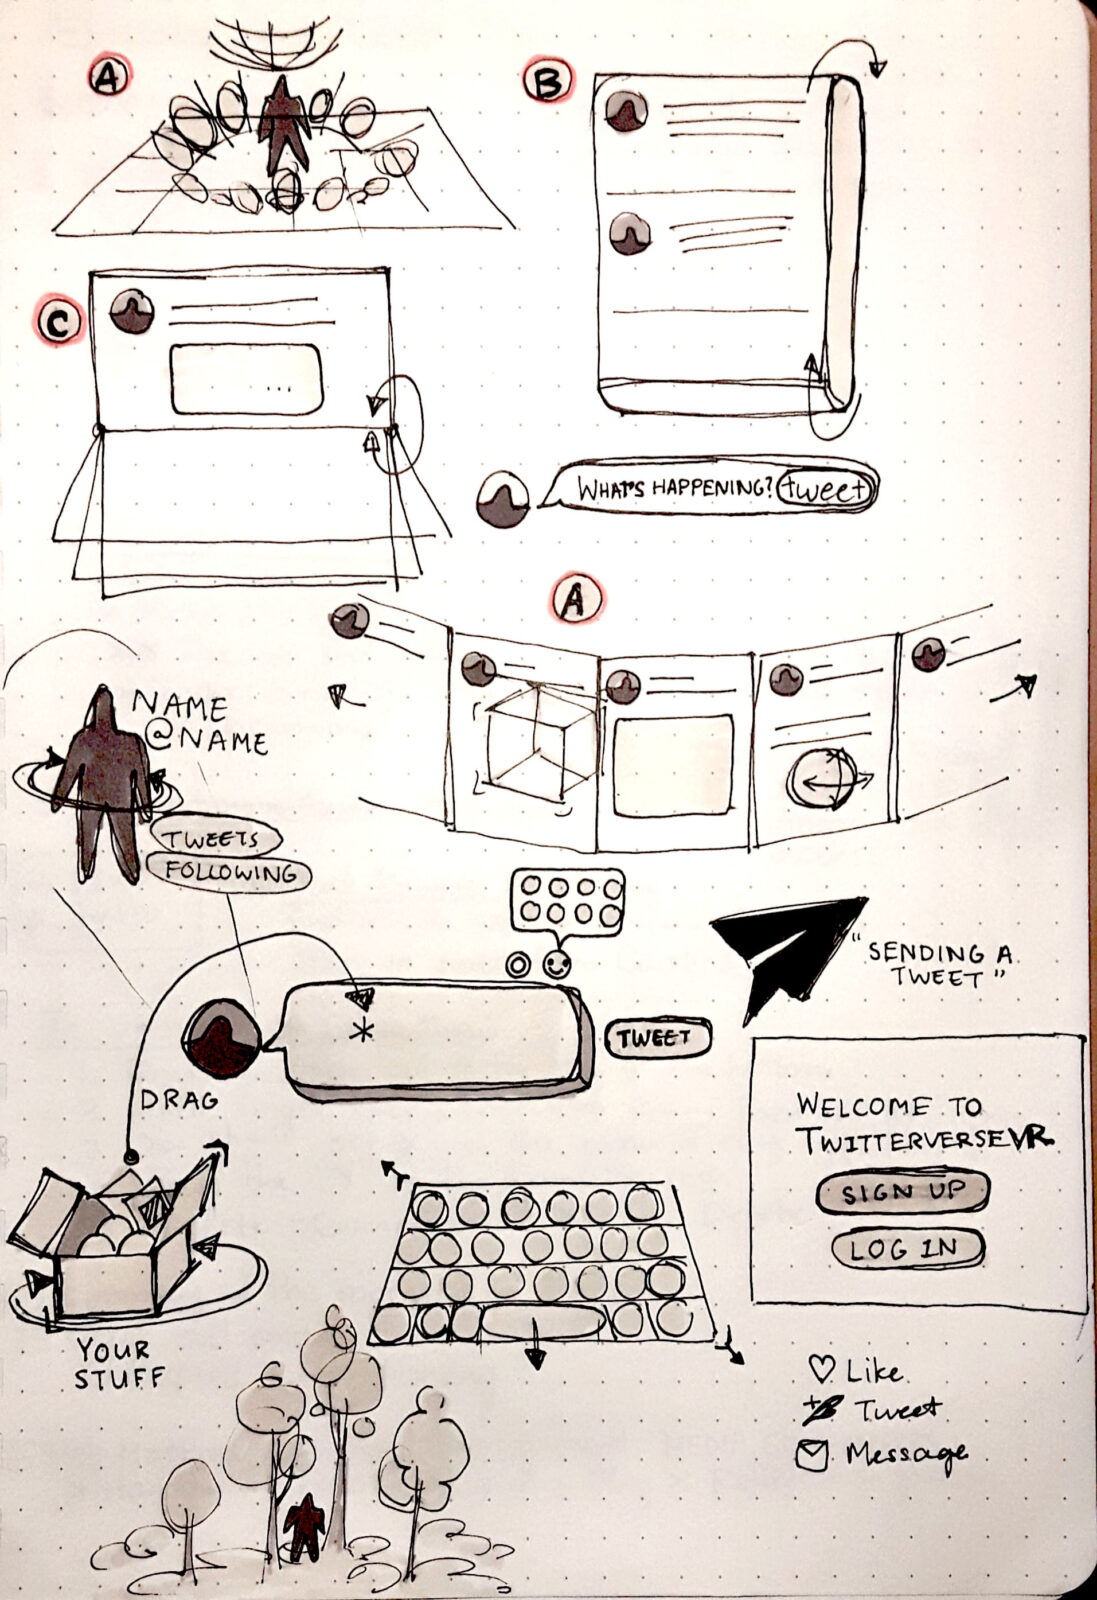 A
B
C
WHAT'S HAPPENING? tweet
A
NAME
@NAME
TWEETS
FOLLOWING
"SENDING A
TWEET"
TWEET
DRAG
WELCOME TO
TWITTERVERSEVR
SIGN UP
LOG IN
YOUR
STUFF
Like
Tweet
Message